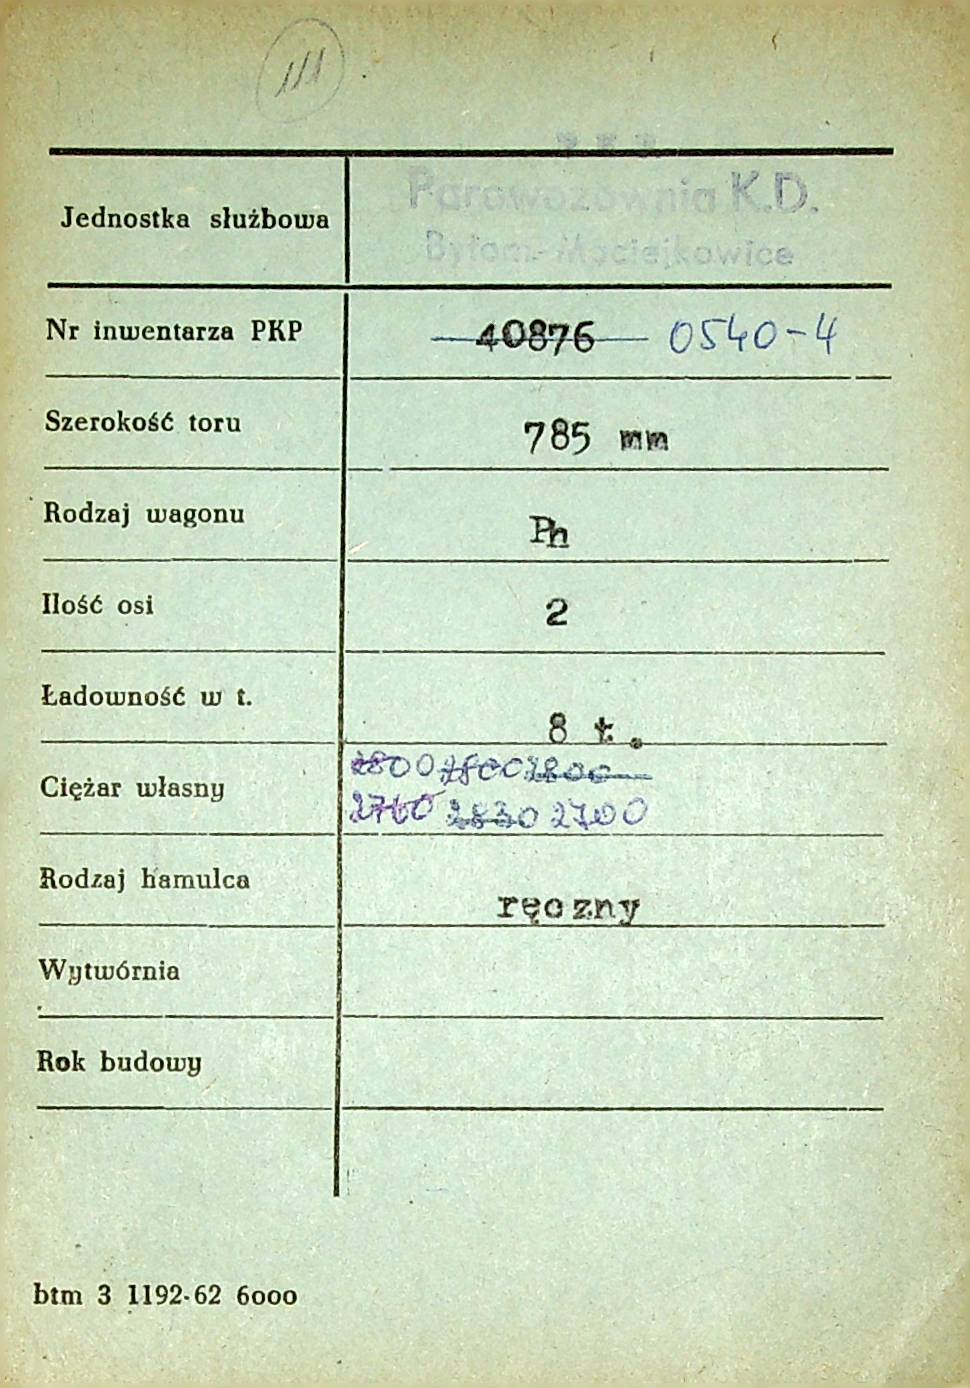 111
Jednostka służbowa
Parowozownia K.D.
Bytom-Maciejkowice
Nr inwentarza PKP 40876 0540-4
Szerokość toru 785 mm
Rodzaj wagonu Ph
Ilość osi 2
Ładowność w t. 8 t.
Ciężar własny 2800 2800 2800
2760 2830 2700
Rodzaj hamulca ręczny
Wytwórnia
Rok budowy
btm 3 1192-62 6000